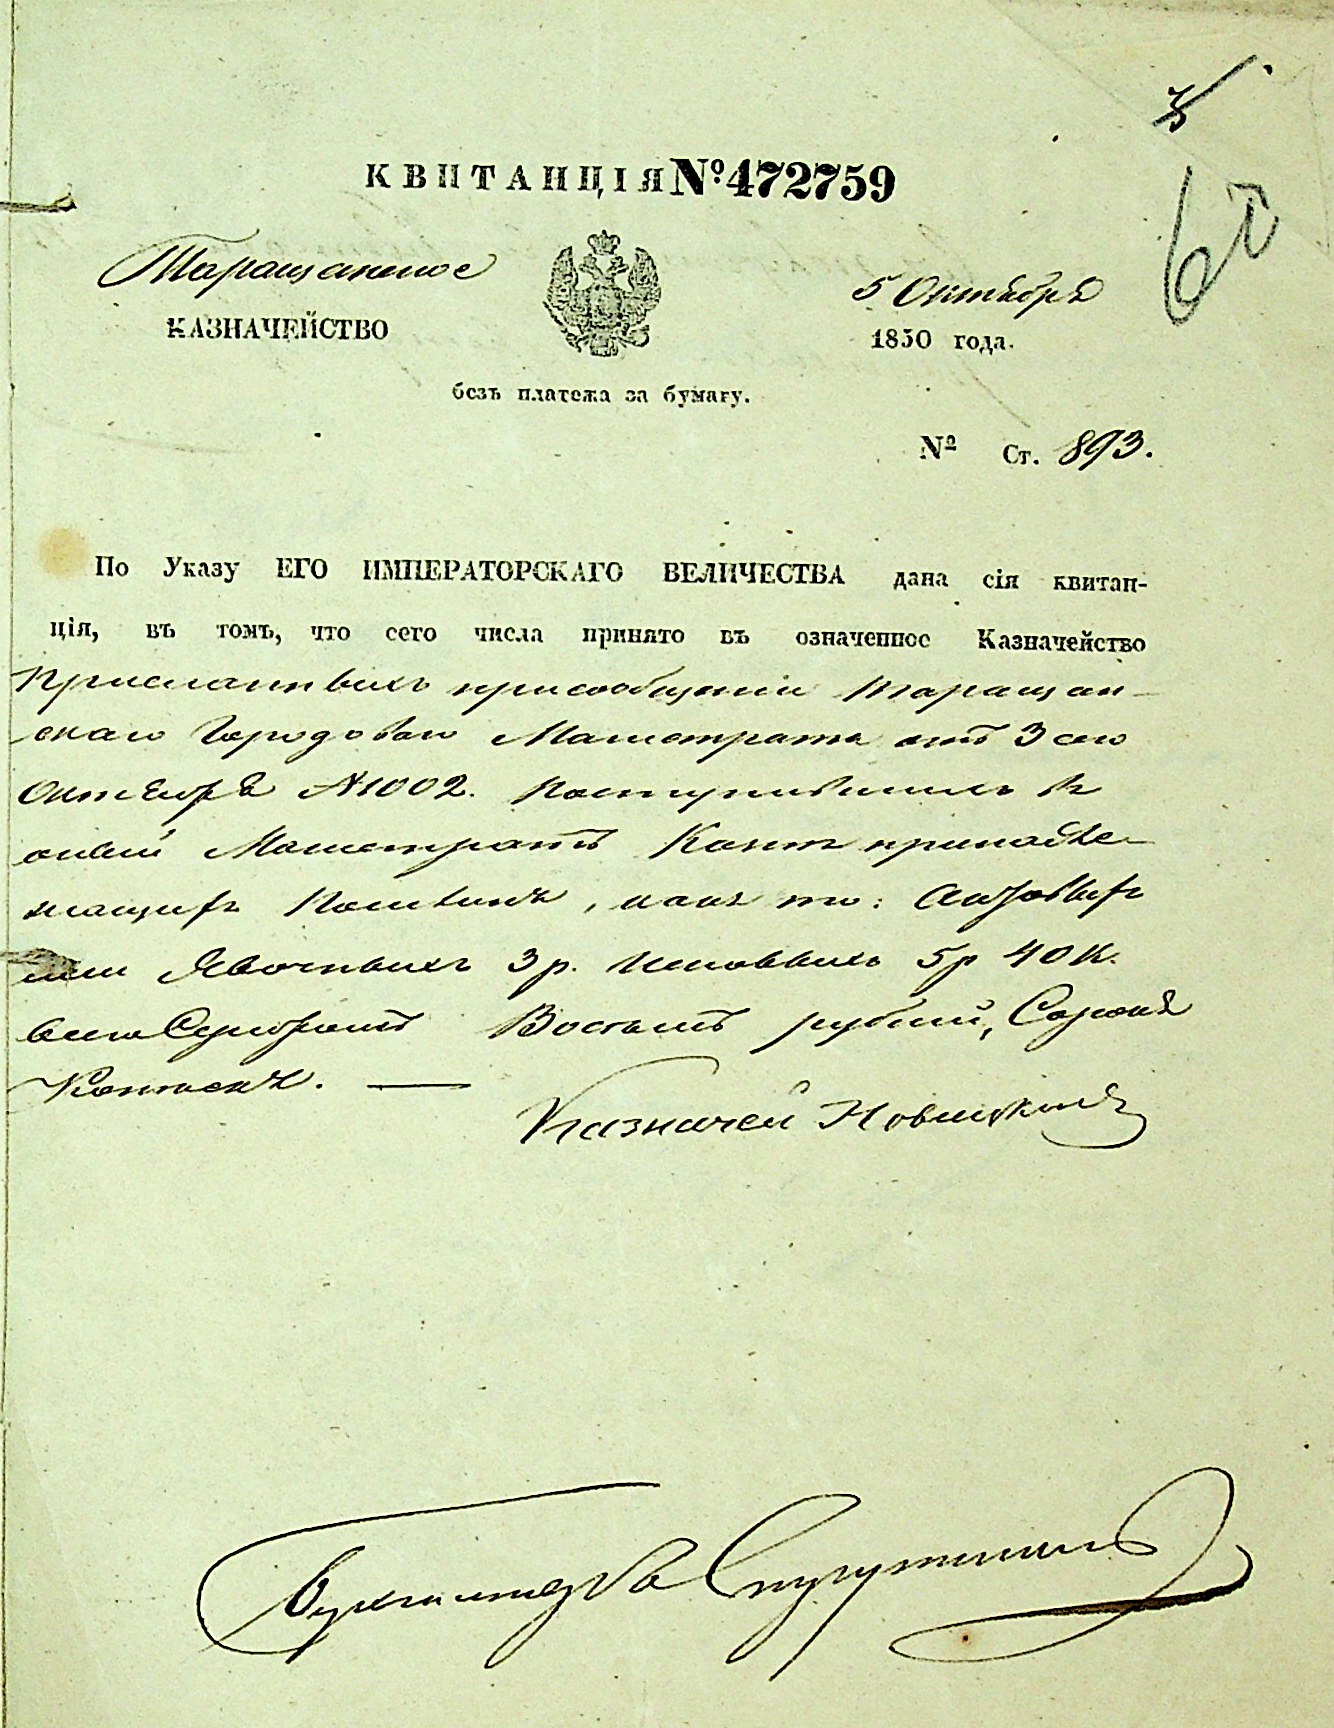 КВИТАНЦІЯ № 472759
Таращанское
5 Октября
КАЗНАЧЕЙСТВО
1850 года.
безъ платежа за бумагу.
№ Ст. 893.
По Указу ЕГО ИМПЕРАТОРСКАГО ВЕЛИЧЕСТВА дана сія квитан-
ція, въ томъ, что сего числа принято въ означенное Казначейство
присланныхъ при сообщеніи Таращан-
скаго Городоваго Магистрата отъ 3 сего
Октября №1002. поступившихъ в
оный Магистратъ Канц принадле-
жащихъ Пошлинъ, какъ то:
Явочныхъ 3 р. Исковыхъ 5 р 40 к.
всего Серебромъ Восемь рублей, Сорокъ
Копѣекъ. —
Казначей Новицкій
Бухгалтеръ